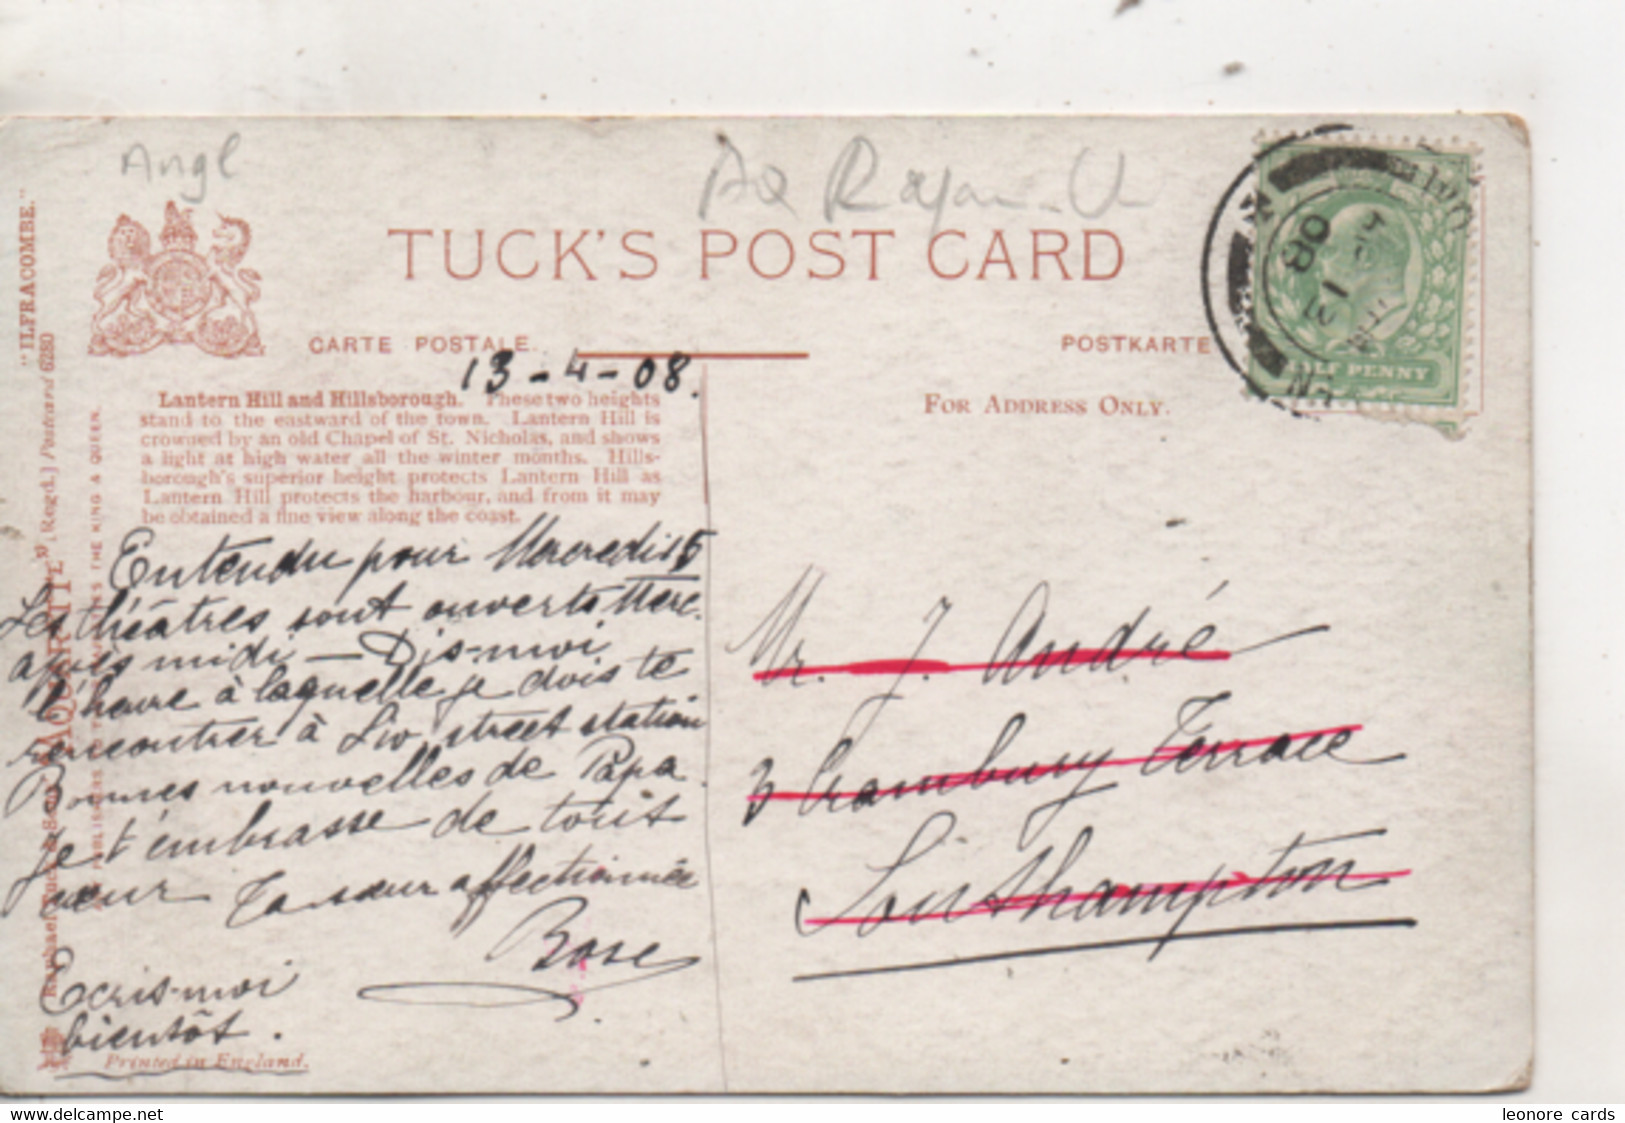 Angl
TUCK'S POST CARD
CARTE POSTALE.
POSTKARTE
13-4-08.
FOR ADDRESS ONLY.
HALF PENNY
08
"ILFRACOMBE."
[Regd.] Postcard 6280
THE KING & QUEEN.
Lantern Hill and Hillsborough. These two heights
stand to the eastward of the town. Lantern Hill is
crowned by an old Chapel of St. Nicholas, and shows
a light at high water all the winter months. Hills-
borough's superior height protects Lantern Hill as
Lantern Hill protects the harbour, and from it may
be obtained a fine view along the coast.
Entendu pour Mercredi 15
Les théâtres sont ouverts Merc.
après midi — Dis-moi
l'heure à laquelle je dois te
rencontrer à Liv. street station
Bonnes nouvelles de Papa.
Je t'embrasse de tout
cœur Ta sœur affectionnée
Rose
Ecris-moi
bientôt.
Printed in England.
Mr. J. André
3 Crambury Terrace
Southampton
delcampe.net
leonore cards